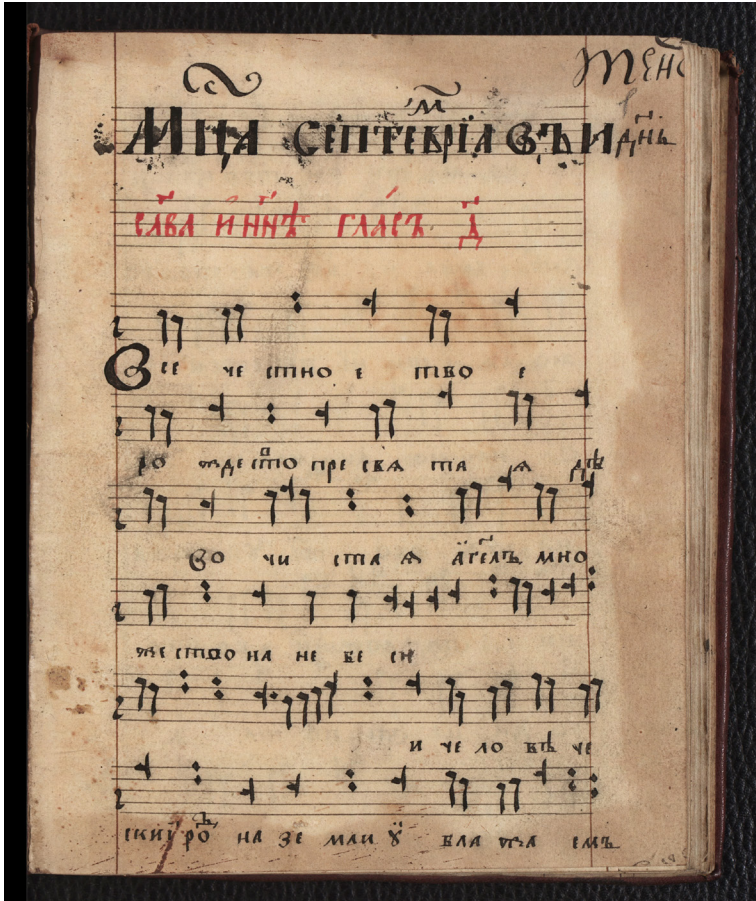 Тено
Мⷭ҇ца септемврїа въ и҃ днь
слава и ннѣ гласъ д҃
Все че стно е тво е
ро жде ство пре свѧ та ѧ дѣ
во чи ста ѧ агг҃лъ мно
же ство на не бе си
и че ло вѣ че
ски ро на зе мли ѹ бла жа емъ